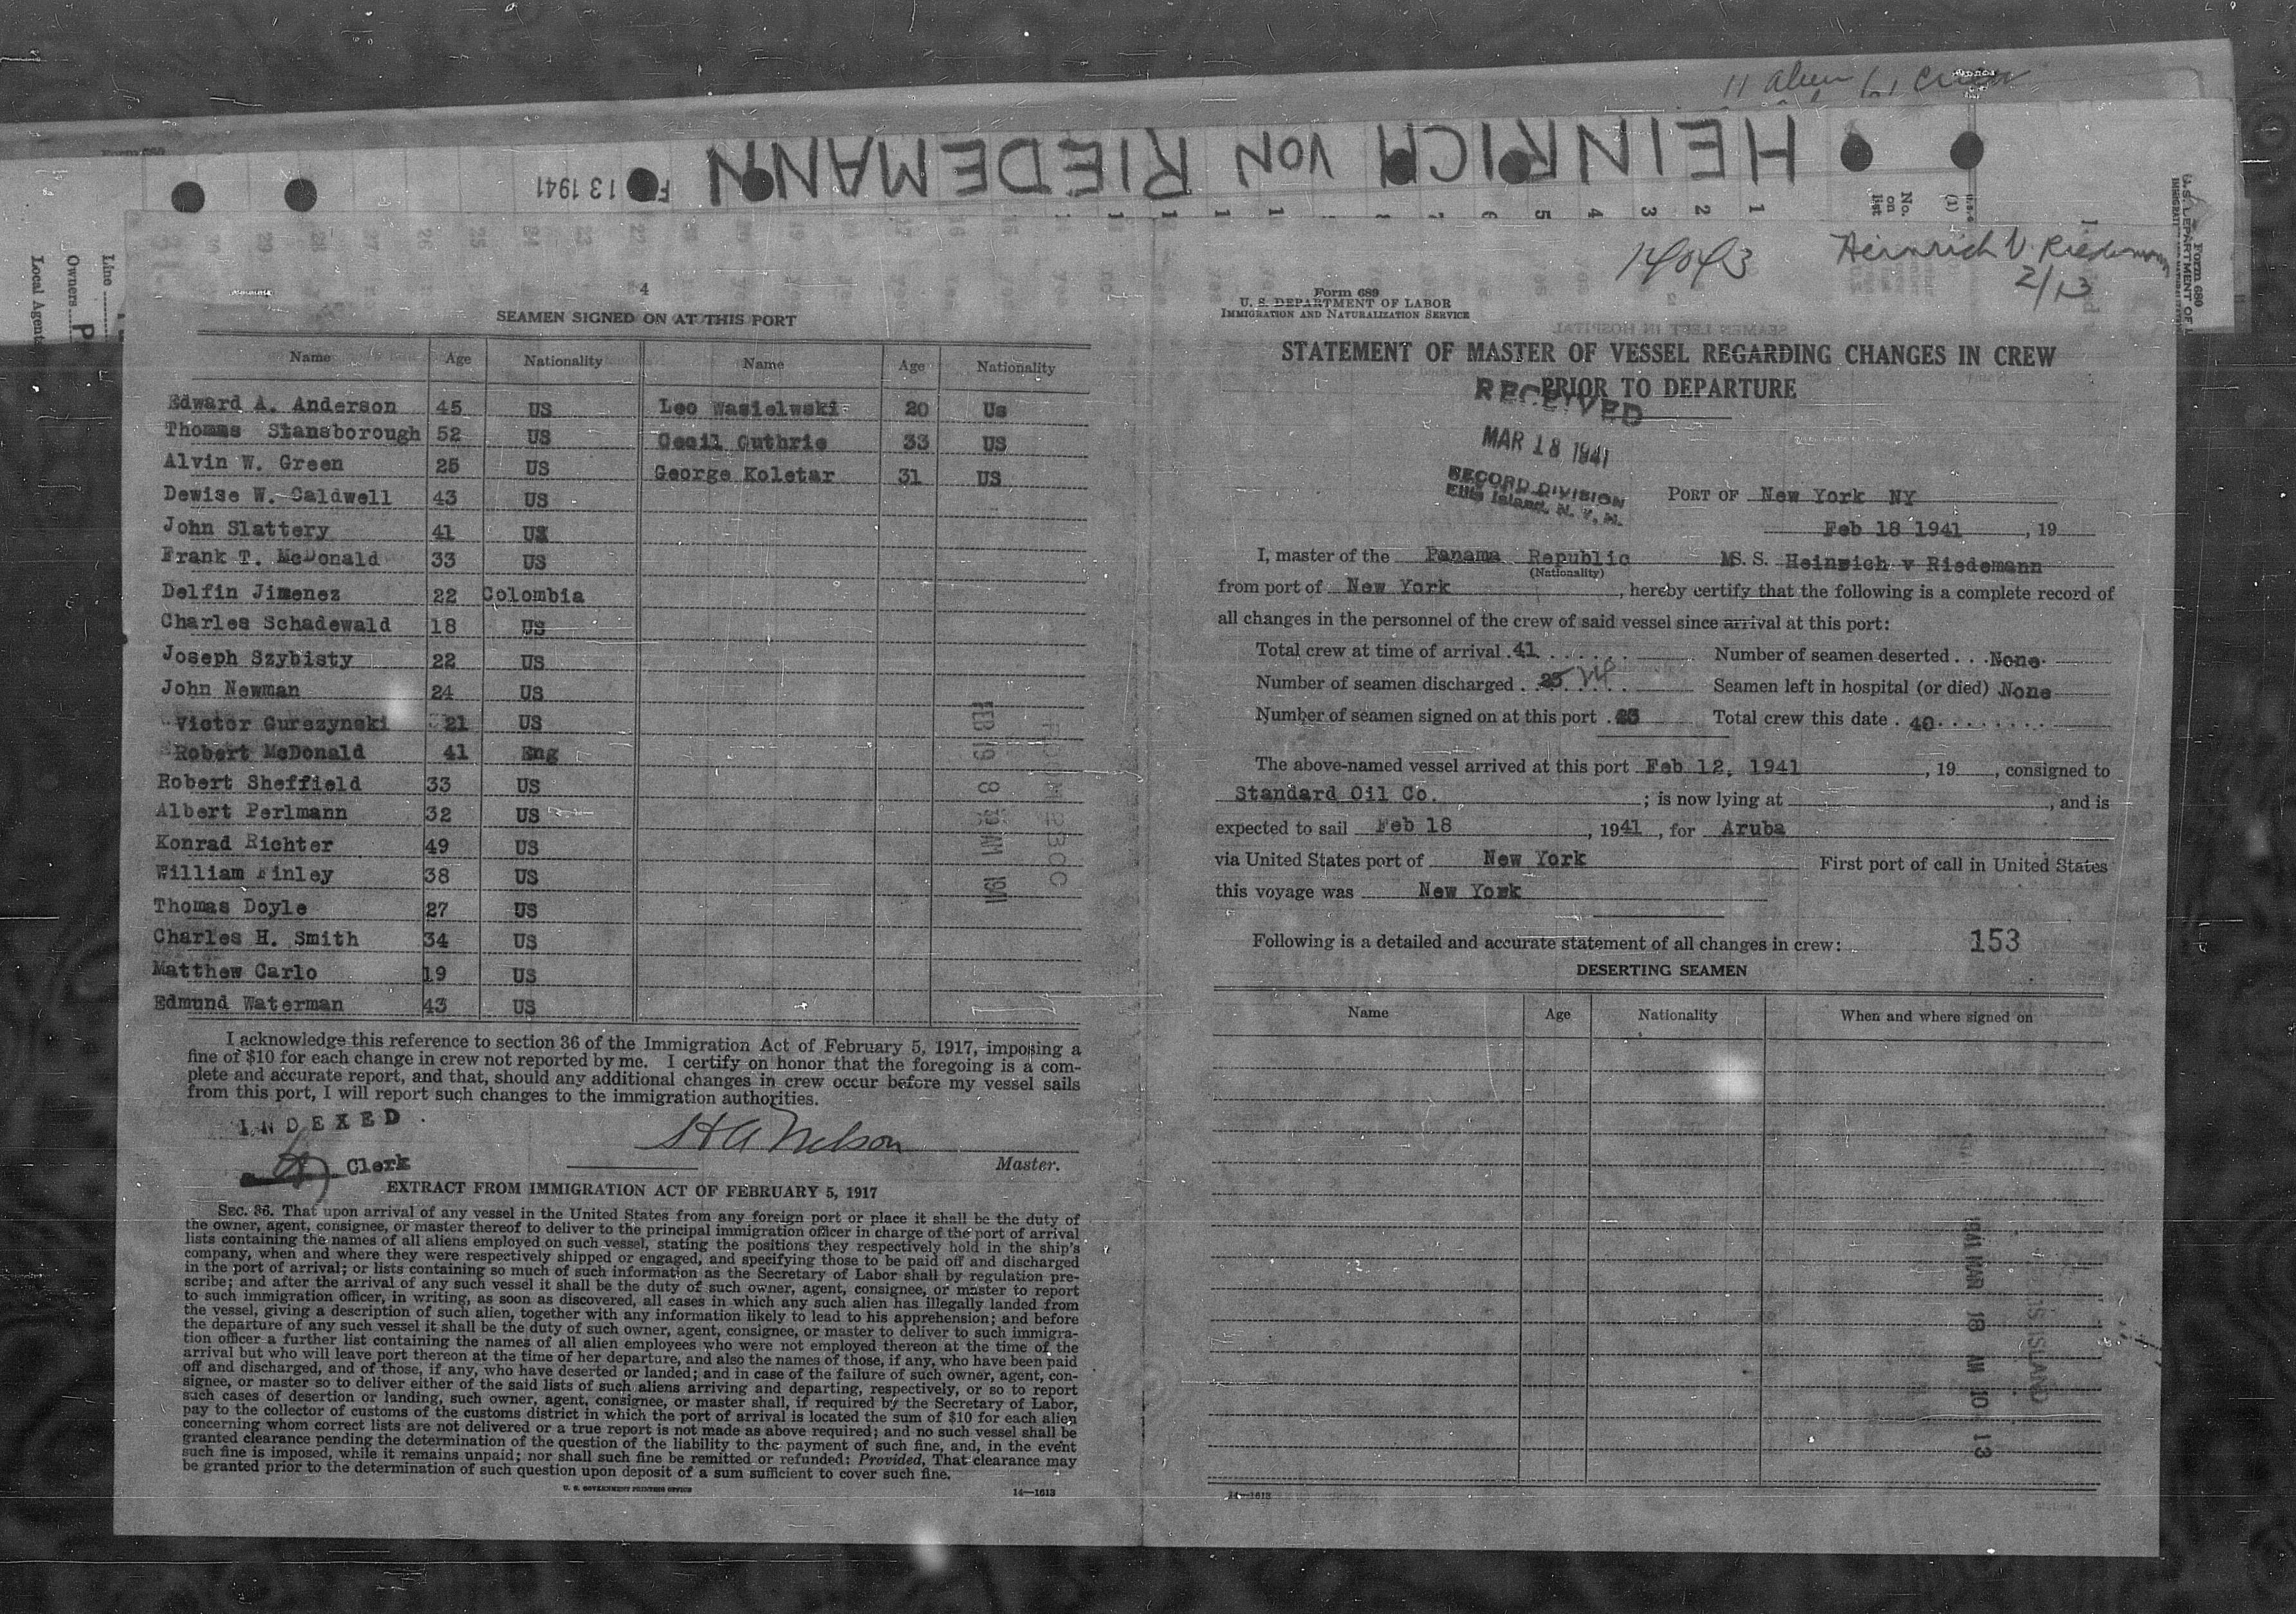 11 Alien
HEINRICH VON RIEDEMANN
13 1941
1 2 3 4 5 6
No. on list
(1)
Form 680
U. S. DEPARTMENT OF L
Line
Owners P
Local Agents
4
SEAMEN SIGNED ON AT THIS PORT
Name Age Nationality Name Age Nationality
Edward A. Anderson 45 US Leo Wasielwski 20 Us
Thomas Stansborough 52 US Cecil Guthrie 33 US
Alvin W. Green 25 US George Koletar 31 US
Dewise W. Caldwell 43 US
John Slattery 41 US
Frank T. McDonald 33 US
Delfin Jimenez 22 Colombia
Charles Schadewald 18 US
Joseph Szybisty 22 US
John Newman 24 US
Victor Gurszynski 21 US
Robert McDonald 41 Eng
Robert Sheffield 33 US
Albert Perlmann 32 US
Konrad Richter 49 US
William Finley 38 US
Thomas Doyle 27 US
Charles H. Smith 34 US
Matthew Carlo 19 US
Edmund Waterman 43 US
FEB 19 8 AM 1941
I acknowledge this reference to section 36 of the Immigration Act of February 5, 1917, imposing a
fine of $10 for each change in crew not reported by me. I certify on honor that the foregoing is a com-
plete and accurate report, and that, should any additional changes in crew occur before my vessel sails
from this port, I will report such changes to the immigration authorities.
INDEXED
Clerk
H A Nelson
Master.
EXTRACT FROM IMMIGRATION ACT OF FEBRUARY 5, 1917
SEC. 36. That upon arrival of any vessel in the United States from any foreign port or place it shall be the duty of
the owner, agent, consignee, or master thereof to deliver to the principal immigration officer in charge of the port of arrival
lists containing the names of all aliens employed on such vessel, stating the positions they respectively hold in the ship's
company, when and where they were respectively shipped or engaged, and specifying those to be paid off and discharged
in the port of arrival; or lists containing so much of such information as the Secretary of Labor shall by regulation pre-
scribe; and after the arrival of any such vessel it shall be the duty of such owner, agent, consignee, or master to report
to such immigration officer, in writing, as soon as discovered, all cases in which any such alien has illegally landed from
the vessel, giving a description of such alien, together with any information likely to lead to his apprehension; and before
the departure of any such vessel it shall be the duty of such owner, agent, consignee, or master to deliver to such immigra-
tion officer a further list containing the names of all alien employees who were not employed thereon at the time of the
arrival but who will leave port thereon at the time of her departure, and also the names of those, if any, who have been paid
off and discharged, and of those, if any, who have deserted or landed; and in case of the failure of such owner, agent, con-
signee, or master so to deliver either of the said lists of such aliens arriving and departing, respectively, or so to report
such cases of desertion or landing, such owner, agent, consignee, or master shall, if required by the Secretary of Labor,
pay to the collector of customs of the customs district in which the port of arrival is located the sum of $10 for each alien
concerning whom correct lists are not delivered or a true report is not made as above required; and no such vessel shall be
granted clearance pending the determination of the question of the liability to the payment of such fine, and, in the event
such fine is imposed, while it remains unpaid; nor shall such fine be remitted or refunded: Provided, That clearance may
be granted prior to the determination of such question upon deposit of a sum sufficient to cover such fine.
U. S. GOVERNMENT PRINTING OFFICE 14—1613
Heinrich V. Riedemann
2/13
Form 689
U. S. DEPARTMENT OF LABOR
IMMIGRATION AND NATURALIZATION SERVICE
STATEMENT OF MASTER OF VESSEL REGARDING CHANGES IN CREW
PRIOR TO DEPARTURE
RECEIVED
MAR 18 1941
RECORD DIVISION
Ellis Island, N. Y. H.
PORT OF New York NY
Feb 18 1941, 19
I, master of the Panama Republic MS. S. Heinrich v Riedemann
(Nationality)
from port of New York, hereby certify that the following is a complete record of
all changes in the personnel of the crew of said vessel since arrival at this port:
Total crew at time of arrival 41 Number of seamen deserted None
Number of seamen discharged Seamen left in hospital (or died) None
Number of seamen signed on at this port Total crew this date 40
The above-named vessel arrived at this port Feb 12, 1941, 19, consigned to
Standard Oil Co.; is now lying at, and is
expected to sail Feb 18, 1941, for Aruba
via United States port of New York First port of call in United States
this voyage was New York
Following is a detailed and accurate statement of all changes in crew: 153
DESERTING SEAMEN
Name Age Nationality When and where signed on
1941 MAR 18 AM 10 13
14—1613